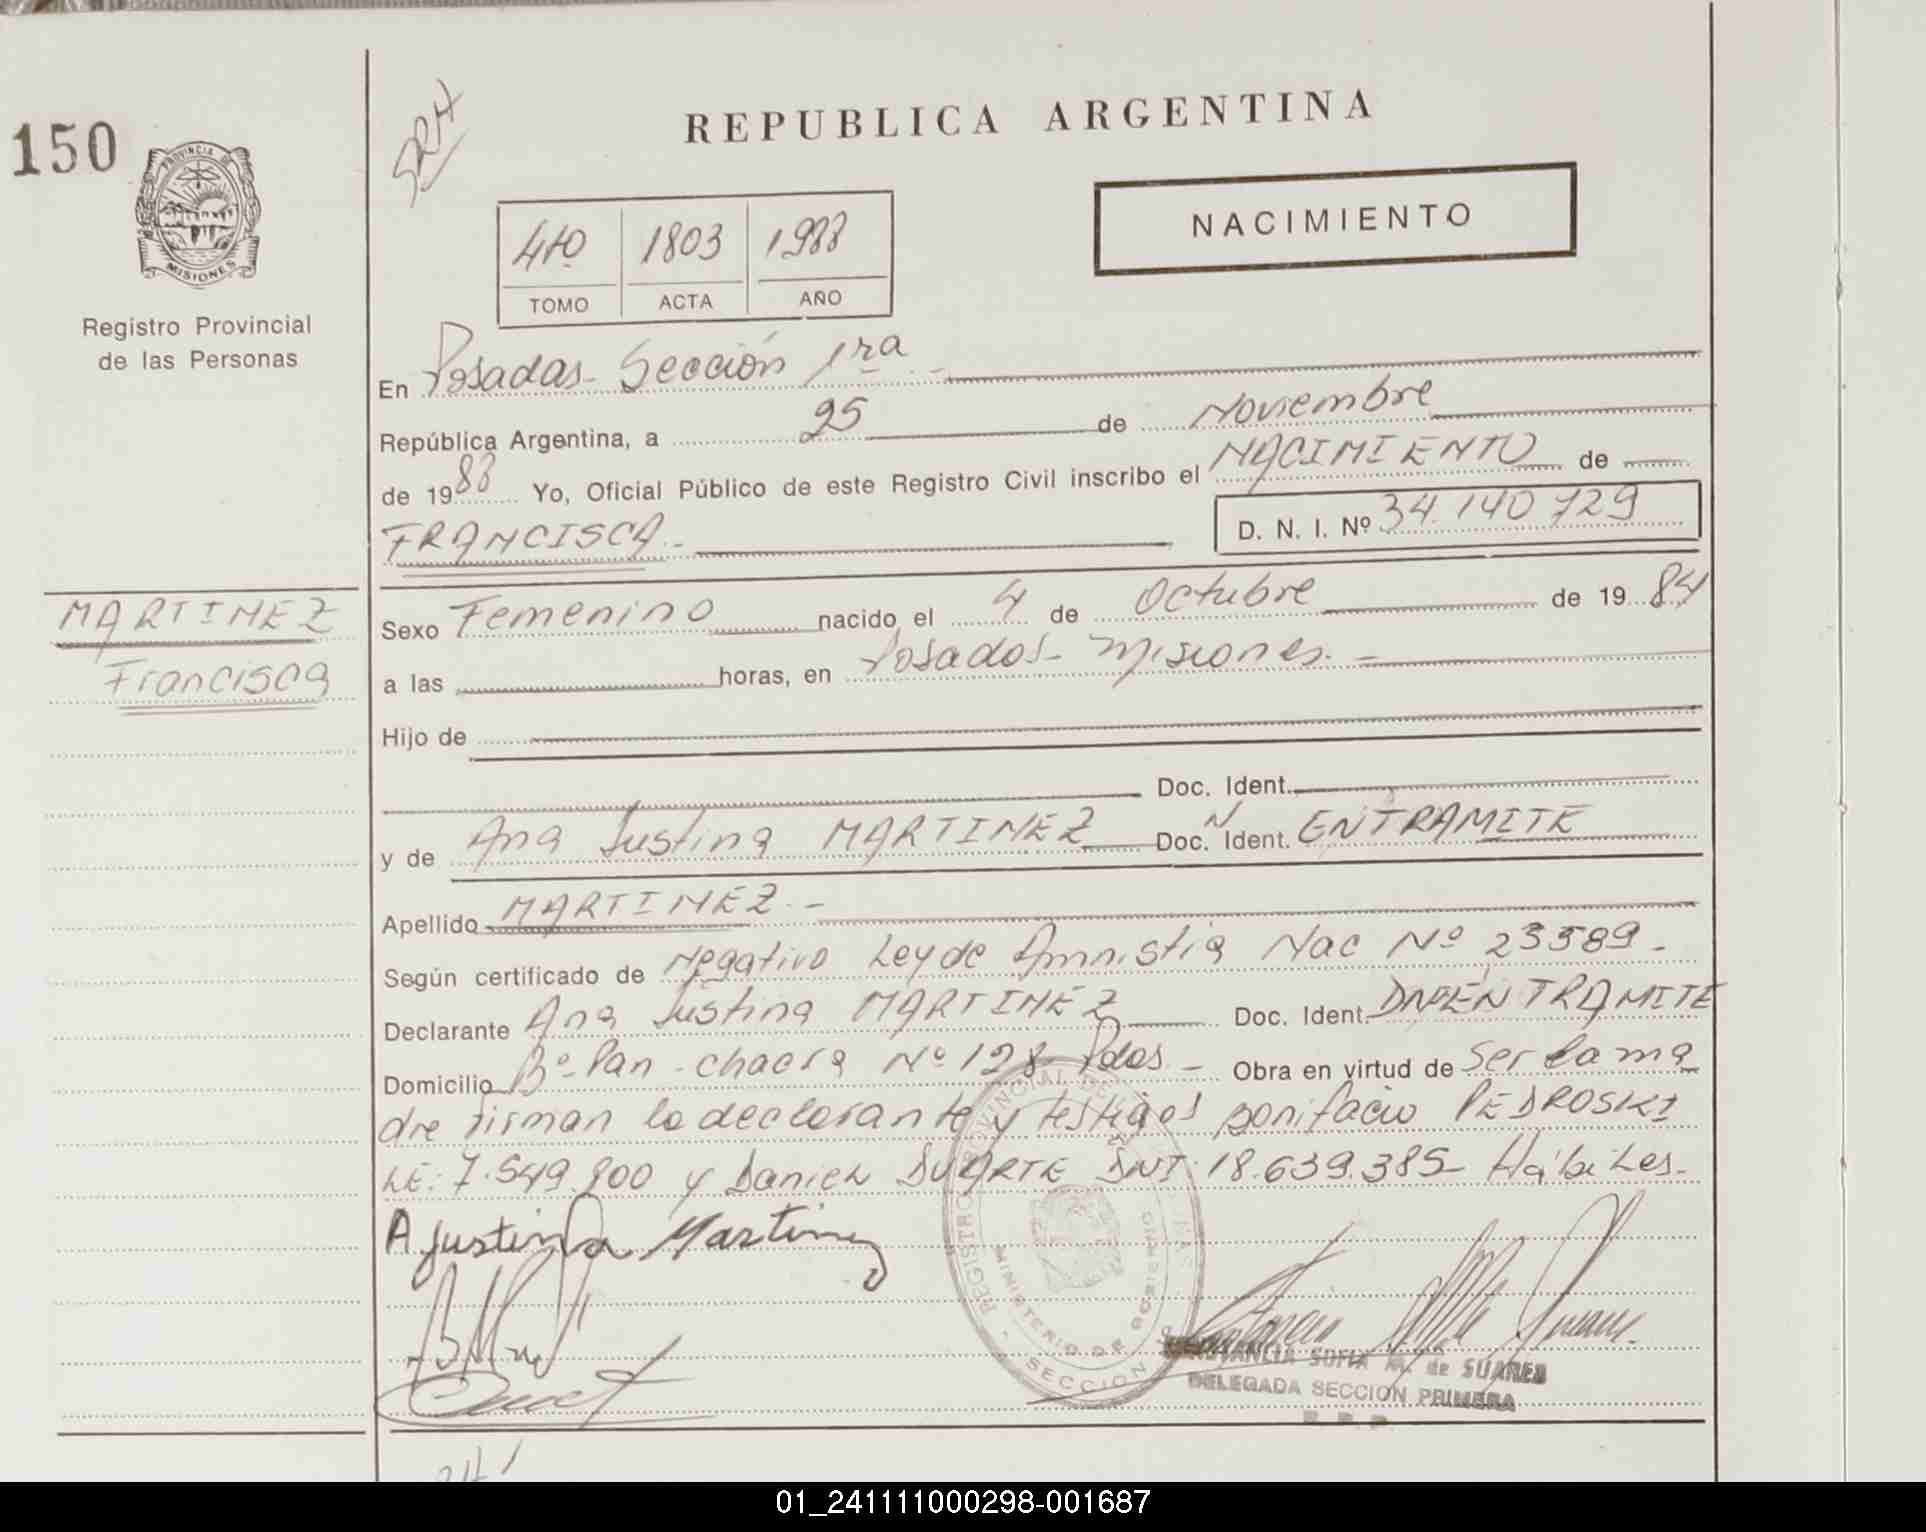 150
SRH
REPUBLICA ARGENTINA
PROVINCIA DE
MISIONES
Registro Provincial
de las Personas
4to 1803 1988
TOMO ACTA AÑO
NACIMIENTO
En Posadas- Sección 1ra -
República Argentina, a 25 de Noviembre
de 1988 Yo, Oficial Público de este Registro Civil inscribo el NACIMIENTO de
FRANCISCA.- D. N. I. Nº 34.140.729
MARTINEZ
Francisca
Sexo Femenino nacido el 4 de Octubre de 1984
a las horas, en Posadas- Misiones. -
Hijo de
Doc. Ident.
y de Ana Justina MARTINEZ Doc. Ident. EN TRAMITE
Apellido MARTINEZ.-
Según certificado de Negativo Ley de Amnistia Nac Nº 23589.
Declarante Ana Justina MARTINEZ Doc. Ident. EN TRAMITE
Domicilio Bº Pan - chacra Nº 128 Pdas. - Obra en virtud de Ser la ma
dre firman la declarante y testigos Bonifacio PEDROSKI
LE: 7.549.900 y Daniel DUARTE DNI: 18.639.385- Hábiles.
A Justina Martinez
REGISTRO PROVINCIAL DE
MINISTERIO DE GOBIERNO
SECCION
SOFIA M. de SUAREZ
DELEGADA SECCION PRIMERA
R. P. P.
01_241111000298-001687